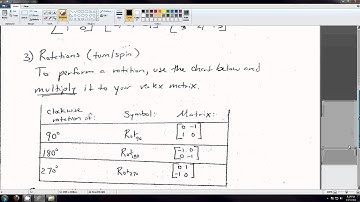 3) Rotations (turn/spin)
To perform a rotation, use the chart below and
multiply it to your vertex matrix.
Clockwise rotation of: Symbol: Matrix:
90° Rot90 [0 -1 1 0]
180° Rot180 [-1 0 0 -1]
270° Rot270 [0 1 -1 0]